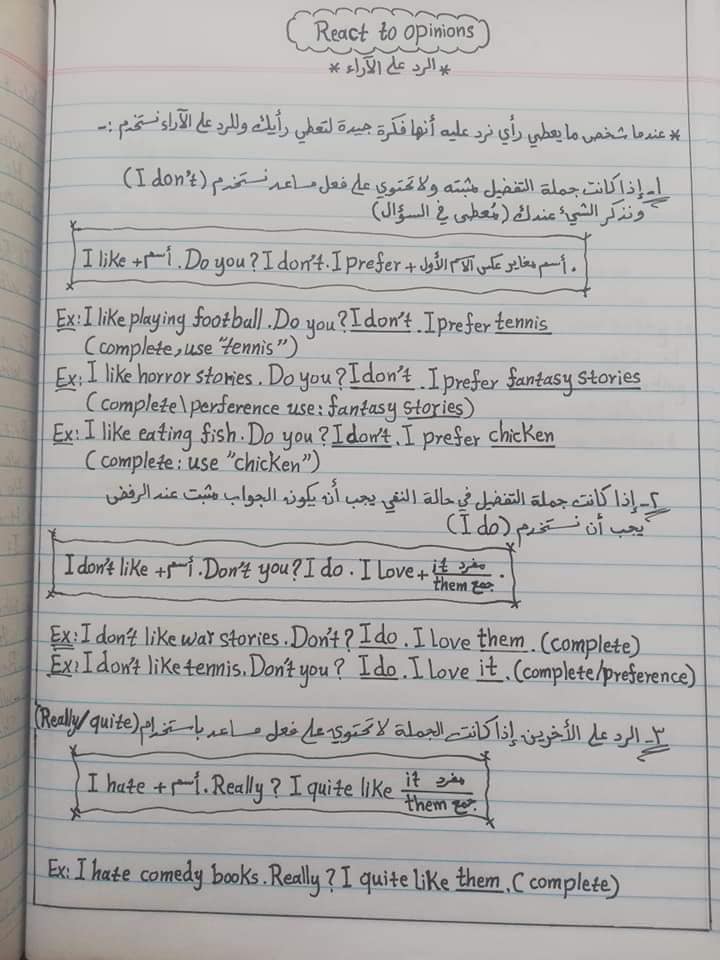 React to opinions
* الرد على الآراء *
* عندما شخص ما يعطي رأي نرد عليه أنها فكرة جيدة لتعطي رأيك وللرد على الآراء نستخدم :-
1- إذا كانت جملة التفضيل مثبته ولا تحتوي على فعل مساعد نستخدم (I don't)
ونذكر الشيئ عندك (مُعطى في السؤال)
I like + أسم. Do you? I don't. I prefer + أسم مغاير عكس الأسم الأول.
Ex: I like playing football. Do you? I don't. I prefer tennis
(complete, use "tennis")
Ex: I like horror stories. Do you? I don't. I prefer fantasy stories
(complete\perference use: fantasy stories)
Ex: I like eating fish. Do you? I don't. I prefer chicken
(complete: use "chicken")
٢- إذا كانت جملة التفضيل في حالة النفي يجب أن يكون الجواب مثبت عند الرفض
يجب أن نستخدم (I do)
I don't like + أسم. Don't you? I do. I love + it مفرد
them جمع.
Ex: I don't like war stories. Don't? I do. I love them. (complete)
Ex: I don't like tennis. Don't you? I do. I love it. (complete/preference)
٣- الرد على الأخرين إذا كانت الجملة لا تحتوي على فعل مساعد باستخدام (Really/quite)
I hate + أسم. Really? I quite like it مفرد
them جمع
Ex: I hate comedy books. Really? I quite like them. (complete)